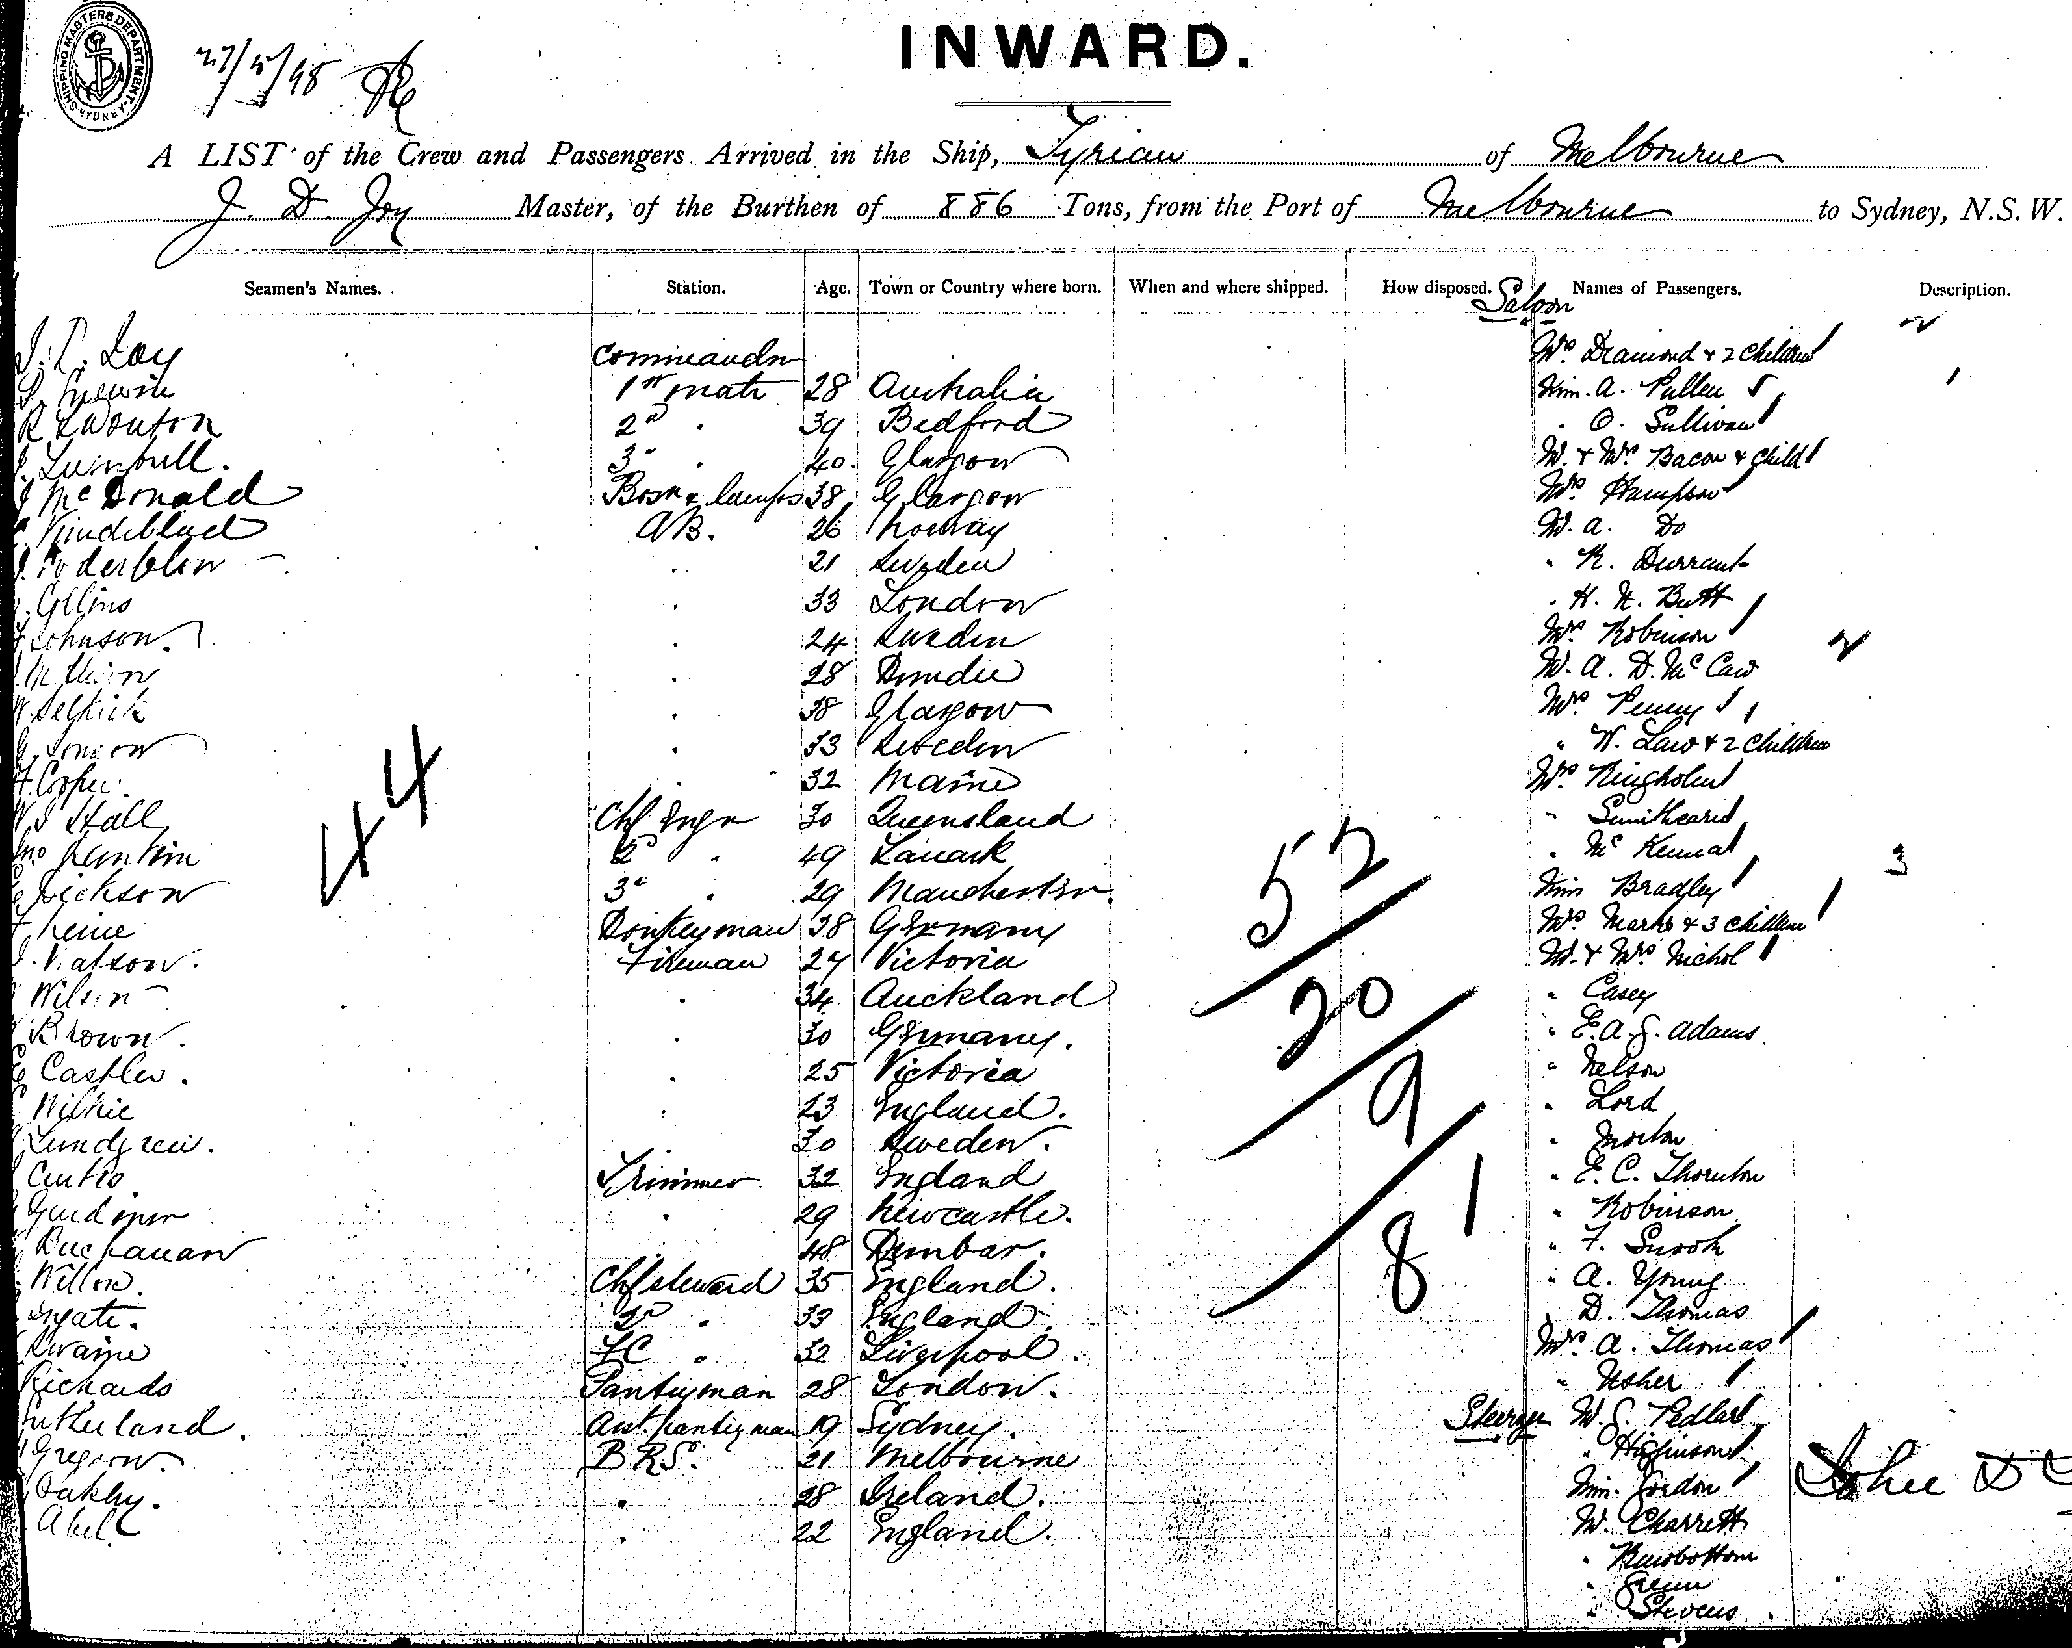 SHIPPING MASTER'S DEPARTMENT SYDNEY
27/5/98
INWARD.
A LIST of the Crew and Passengers Arrived in the Ship, Tyrian of Melbourne
J. D. Joy Master, of the Burthen of 886 Tons, from the Port of Melbourne to Sydney, N.S.W.
Seamen's Names. Station. Age. Town or Country where born. When and where shipped. How disposed. Names of Passengers. Description.
Saloon
Commander Mrs Diamond & 2 children
1st mate 28 Australia A. Pullen
2d " 39 Bedford " O. Sullivan
3d " 40 Glasgow M. & Mrs Bacon & child
McDonald Bosn & lamps 38 Glasgow Mrs Hampson
AB. 26 Norway M. A. Do
" 21 Sweden " R. Durrant
Collins " 33 London " H. N. Butt
Johnson " 24 Sweden Mrs Robinson
" 28 Dundee M. A. D. McCaw
Selkirk " 38 Glasgow Mrs Penny
" 33 Sweden " W. Law & 2 children
Cooper " 32 Maine Mrs Ringholm
Hall Chf Engr 30 Queensland "
2d " 49 Lanark " Mc Kenna
Dickson 3d " 29 Manchester Miss Bradley
Donkeyman 38 Germany Mrs Marks & 3 children
Watson. Fireman 27 Victoria M. & Mrs Nichol
Wilson " 34 Auckland " Casey
Brown. " 30 Germany. " E. A. G. Adams
Castles. " 25 Victoria " Nelson
Wilkie " 23 England. " Lord
Lundgren. " 30 Sweden. " Morton
Curtis Trimmer 32 England " E. C. Thornton
Gardiner " 29 Newcastle. " Robinson
Buchanan 48 Dunbar. " F. Snook
Wilton. Chf steward 35 England. " A. Young
2d " 33 England. " D. Thomas
Swaine FC " 32 Liverpool. Mrs A. Thomas
Richards Pantryman 28 London. " Usher
Sutherland. Asst. pantryman 19 Sydney. Steerage Pedler
Gregson. B.R.S. 21 Melbourne " Higginson
Oakley. " 28 Ireland. Gordon
Abel " 22 England. M. Charrett
"
" Green
" Stevens
44
52
20
9
81
2
1
2
3
John D